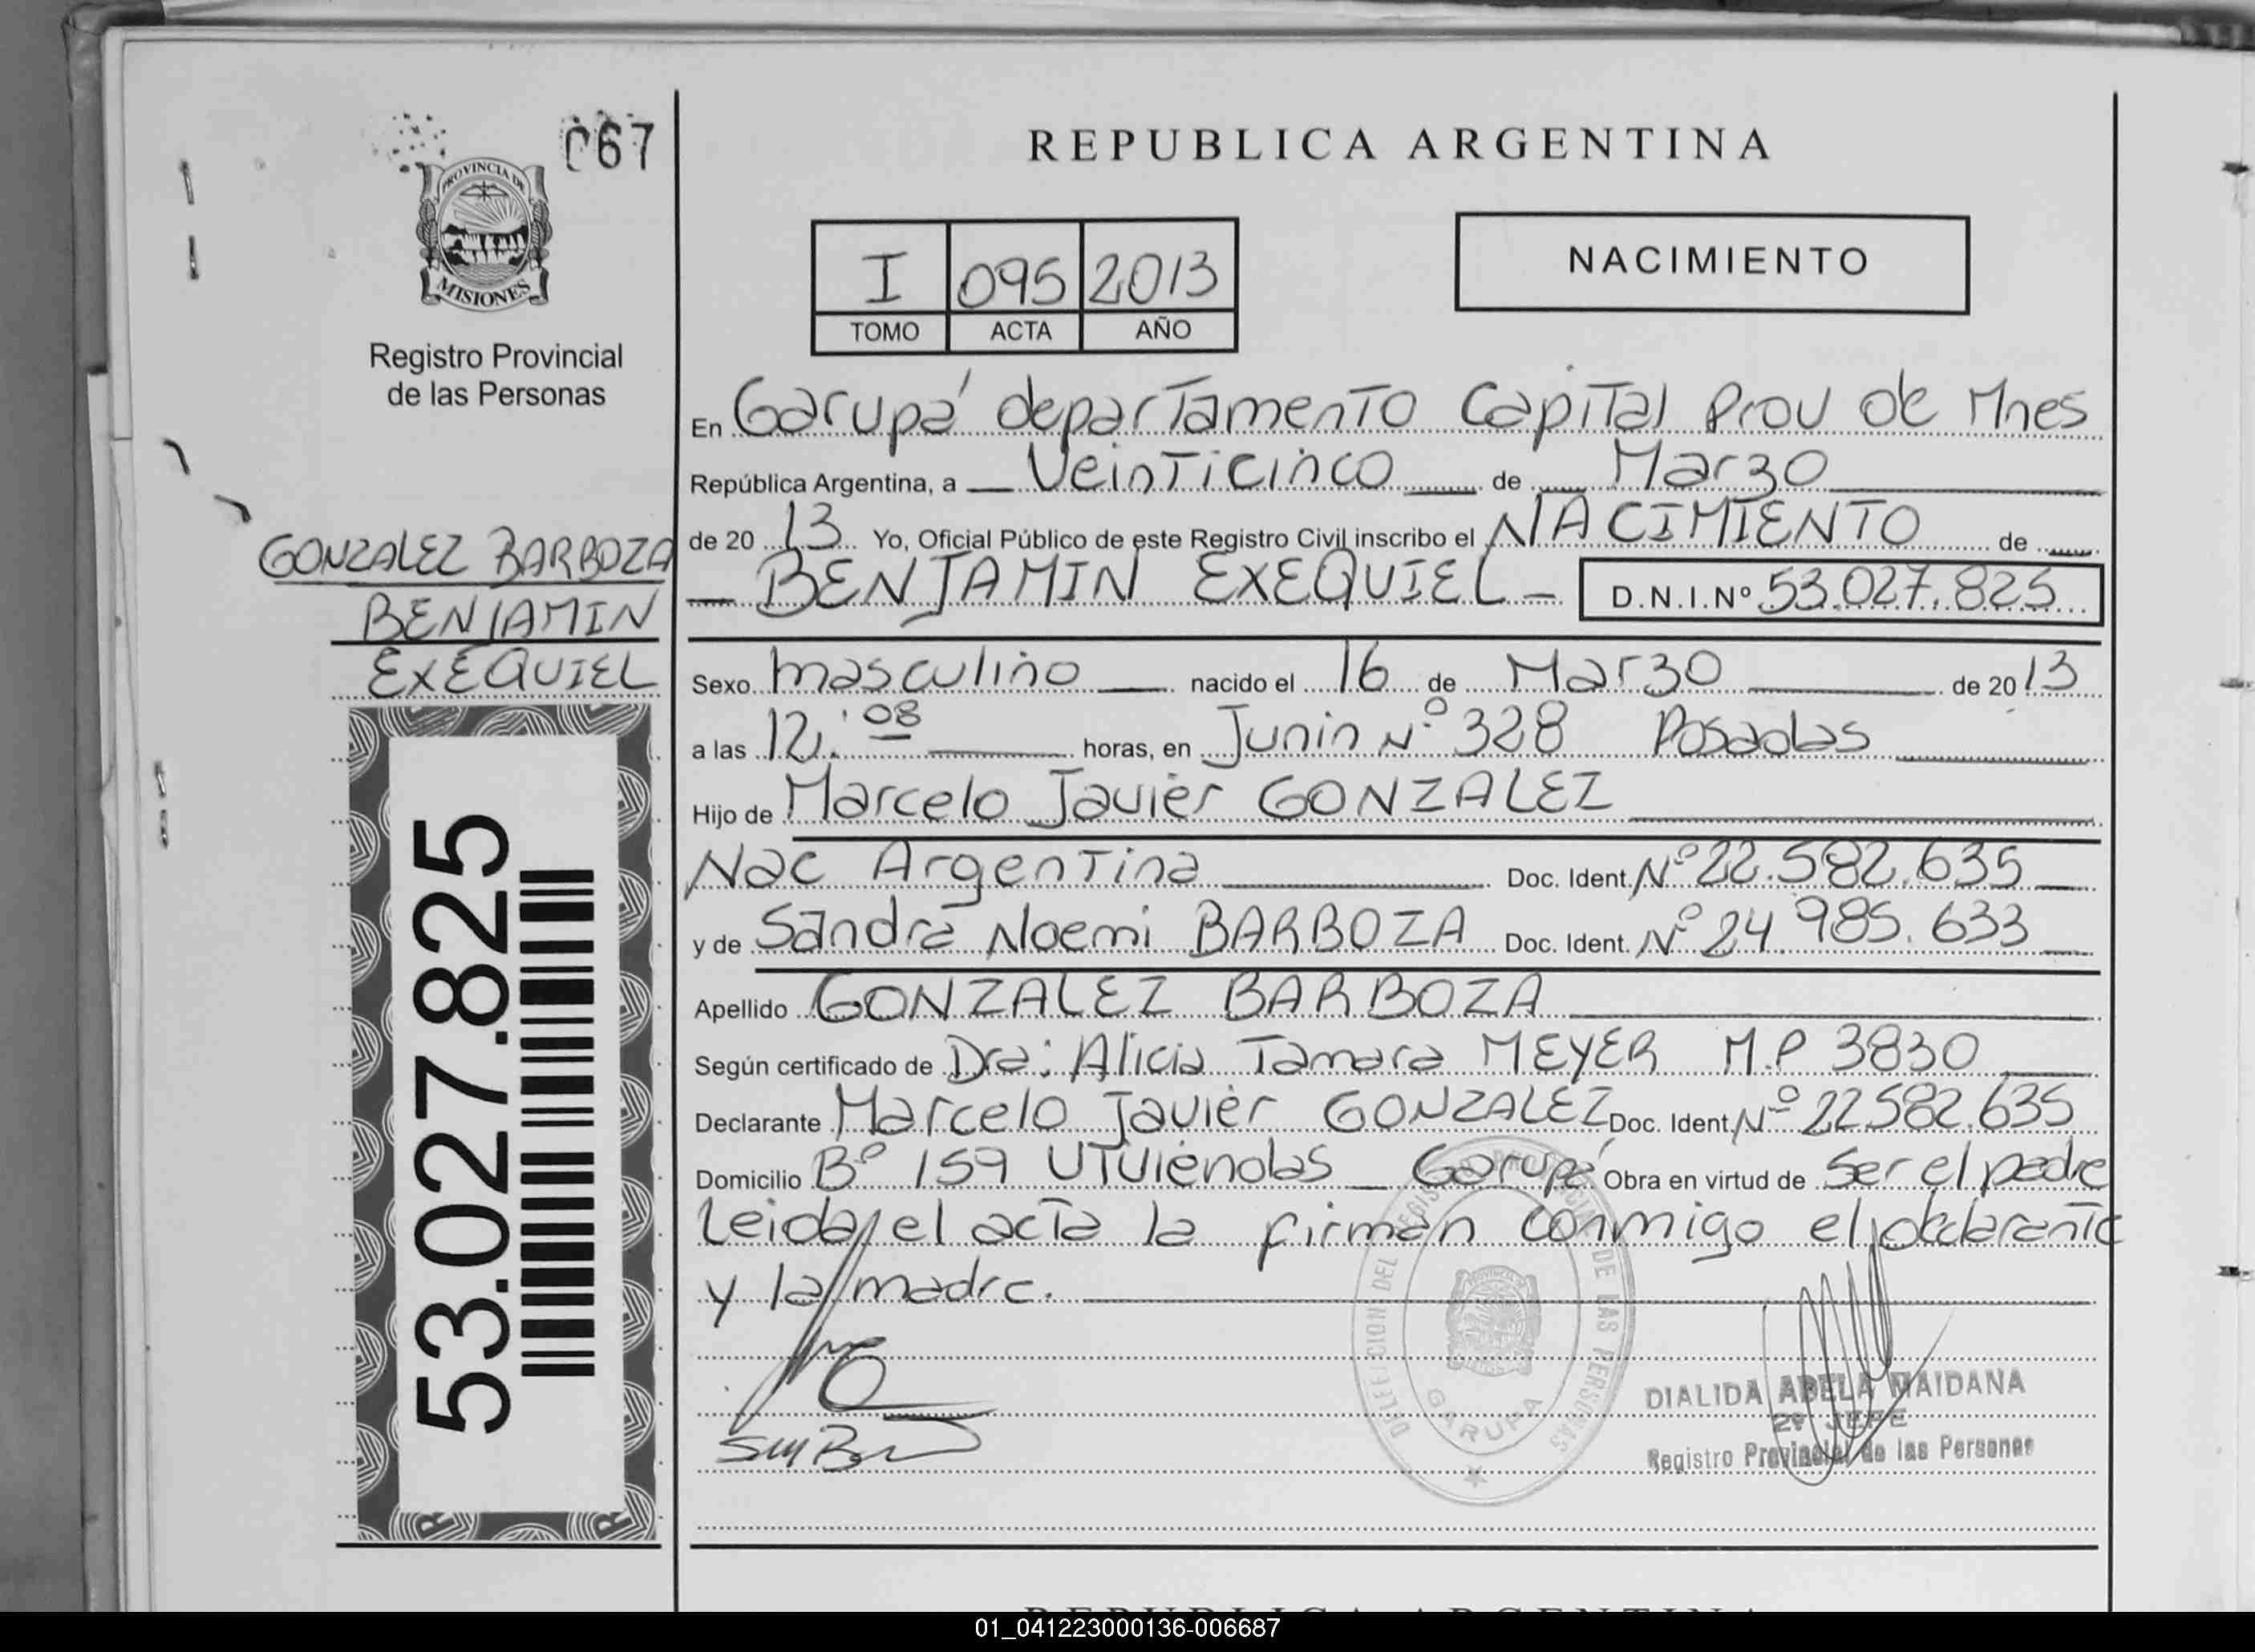 067
PROVINCIA DE
MISIONES
Registro Provincial
de las Personas
GONZALEZ BARBOZA
BENJAMIN
EXEQUIEL
53.027.825
REPUBLICA ARGENTINA
I 095 2013
TOMO ACTA AÑO
NACIMIENTO
En Garupá departamento Capital Prov de Mnes
República Argentina, a Veinticinco de Marzo
de 20 13 Yo, Oficial Público de este Registro Civil inscribo el NACIMIENTO de
BENJAMIN EXEQUIEL D.N.I.Nº 53.027.825
Sexo masculino nacido el 16 de Marzo de 20 13
a las 12:08 horas, en Junin Nº 328 Posadas
Hijo de Marcelo Javier GONZALEZ
Nac Argentina Doc. Ident. Nº 22.582.635
y de Sandra Noemi BARBOZA Doc. Ident. Nº 24.985.633
Apellido GONZALEZ BARBOZA
Según certificado de Dra: Alicia Tamara MEYER M.P 3830
Declarante Marcelo Javier GONZALEZ Doc. Ident. Nº 22582.635
Domicilio Bº 159 Viviendas Garupá Obra en virtud de Ser el padre
Leida el acta la firman conmigo el declarante
y la madre.
GARUPA
DIALIDA ADELA MAIDANA
2º JEFE
Registro Provincial de las Personas
REPUBLICA ARGENTINA
01_041223000136-006687